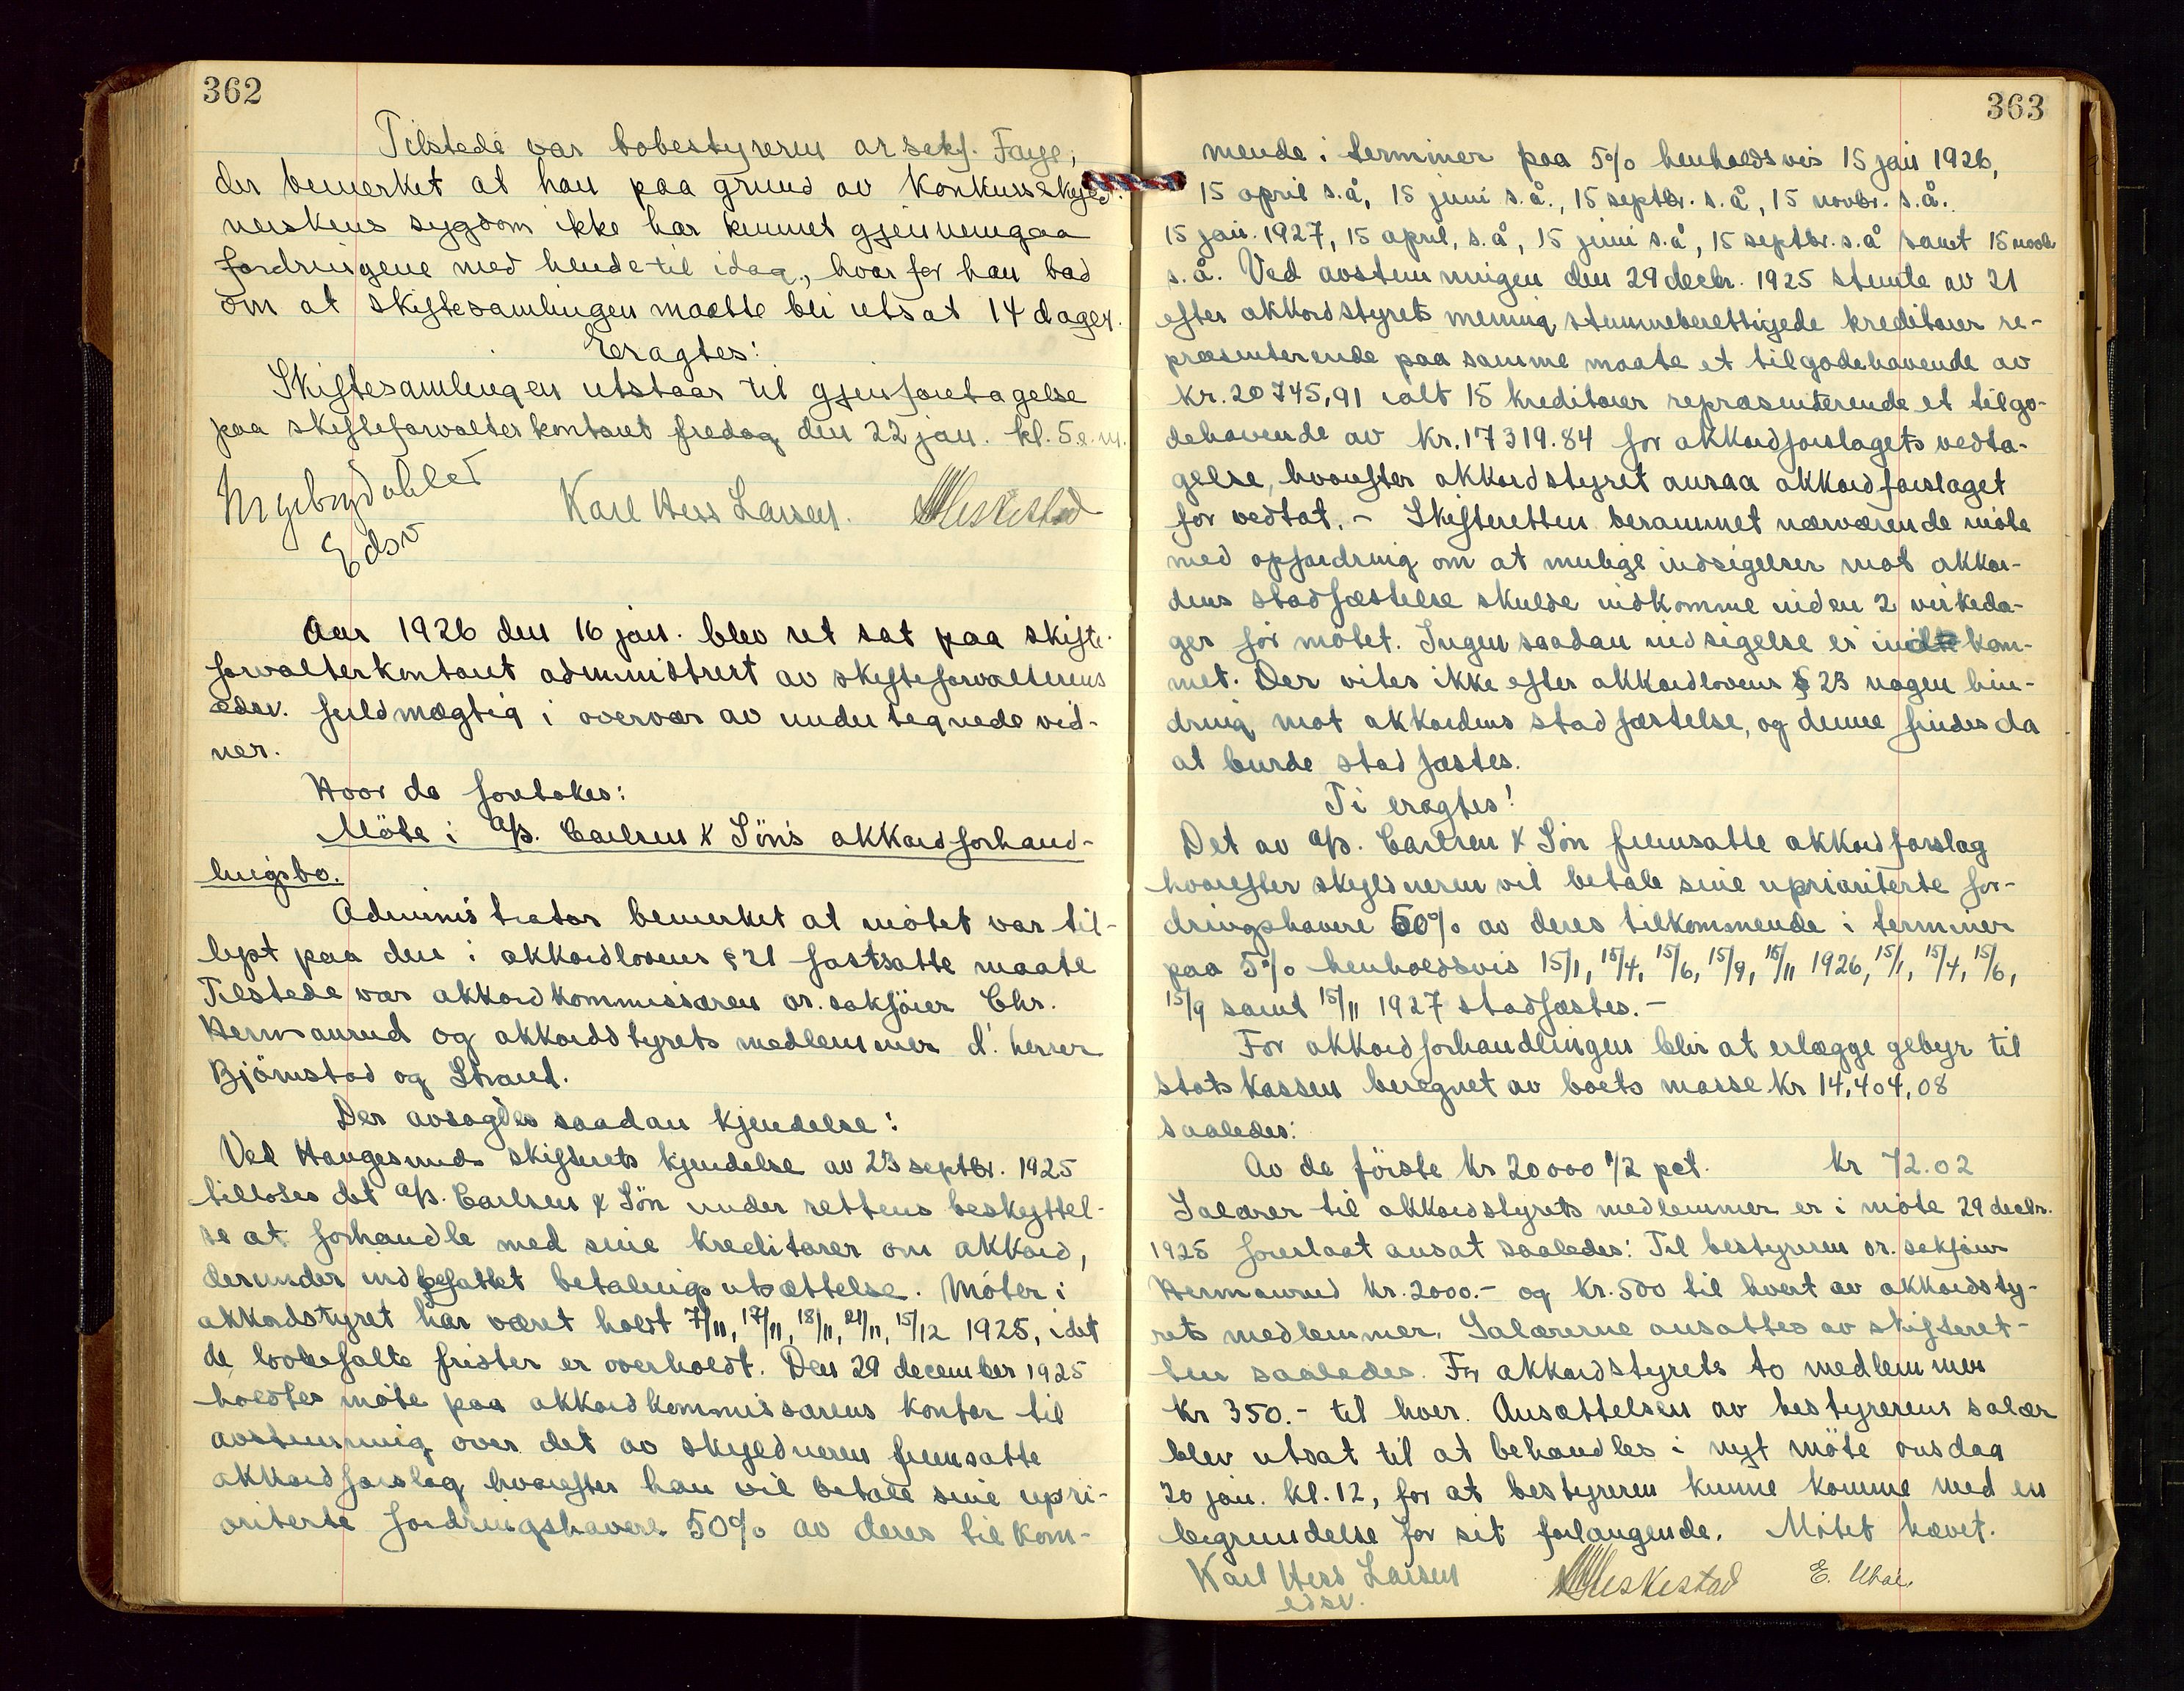 362
Tilstede var bobestyreren or sakf. Faye,
der bemerket at han paa grund av konkursskyld-
nerskens sygdom ikke har kunnet gjennemgaa
fordringene med hende til idag, hvorfor han bad
om at skiftesamlingen maatte bli utsat 14 dager.
Eragtes:
Skiftesamlingen utstaar til gjenforetagelse
paa skifteforvalterkontoret fredag den 22 jan. kl. 5 e.m.
Karl Hess Larsen. Meskestad
Edsv
Aar 1926 den 16 jan. blev ret sat paa skifte-
forvalterkontoret administrert av skifteforvalterens
edsv. fuldmægtig i overvær av undertegnede vid-
ner.
Hvor da foretokes:
Møte i A/S. Carlsen & Søn's akkordforhand-
lingsbo.
Administrator bemerket at møtet var til-
lyst paa den i akkordlovens § 21 fastsatte maate
Tilstede var akkordkommissæren or. sakfører Chr.
Hermanrud og akkordstyrets medlemmer d'. herrer
Bjørnstad og Strand.
Der avsagdes saadan kjendelse:
Ved Haugesunds skifterets kjendelse av 23 septbr. 1925
tillotes det A/S. Carlsen & Søn under rettens beskyttel-
se at forhandle med sine kreditorer om akkord,
derunder indbefattet betalingsutsættelse. Møter i
akkordstyret har været holdt 7/11, 17/11, 18/11, 21/11, 15/12 1925, idet
de lovbefalte frister er overholdt. Den 29 december 1925
holdtes møte paa akkordkommissærens kontor til
avstemning over det av skyldneren fremsatte
akkordforslag hvorefter han vil betale sine upri-
oriterte fordringshavere 50% av deres tilkom-
363
mende i terminer paa 5% henholdsvis 15 jan 1926,
15 april s.å, 15 juni s.å., 15 septbr. s.å, 15 novbr. s.å.
15 jan. 1927, 15 april, s.å, 15 juni s.å, 15 septbr. s.å samt 15 novb
s.å. Ved avstemningen den 29 decbr. 1925 stemte av 21
efter akkordstyrets mening stemmeberettigede kreditorer re-
præsenterende paa samme maate et tilgodehavende av
kr. 20745,91 ialt 15 kreditorer repræsenterende et tilgo-
dehavende av kr. 17319.84 for akkordforslagets vedta-
gelse, hvorefter akkordstyret ansaa akkordforslaget
for vedtat. - Skifteretten berammet nærværende møte
med opfordring om at mulige indsigelser mot akkor-
dens stadfæstelse skulde indkomme inden 2 virkeda-
ger før møtet. Ingen saadan indsigelse er indkom-
met. Der vites ikke efter akkordlovens § 23 nogen hin-
dring mot akkordens stadfæstelse, og denne findes da
at burde stadfæstes.
Ti eragtes!
Det av A/S. Carlsen & Søn fremsatte akkordforslag
hvorefter skyldneren vil betale sine uprioriterte for-
dringshavere 50% av deres tilkommende i terminer
paa 5% henholdsvis 15/1, 15/4, 15/6, 15/9, 15/11 1926, 15/1, 15/4, 15/6,
15/9 samt 15/11 1927 stadfæstes. -
For akkordforhandlingen blir at erlægge gebyr til
statskassen beregnet av boets masse kr 14,404,08
saaledes:
Av de første kr 20000 1/2 pct. kr 72.02
Salærer til akkordstyrets medlemmer er i møte 29 decbr.
1925 foreslaat ansat saaledes: Til bestyreren or. sakfører
Hermanrud kr. 2000.- og kr. 500 til hvert av akkordsty-
rets medlemmer. Salærerne ansattes av skifteret-
ten saaledes. For akkordstyrets to medlemmer
kr 350.- til hver. Ansættelsen av bestyrerens salær
blev utsat til at behandles i nyt møte onsdag
20 jan. kl. 12, for at bestyreren kunne komme med en
begrundelse for sit forlangende. Møtet hævet.
Karl Hess Larsen Meskestad
edsv.